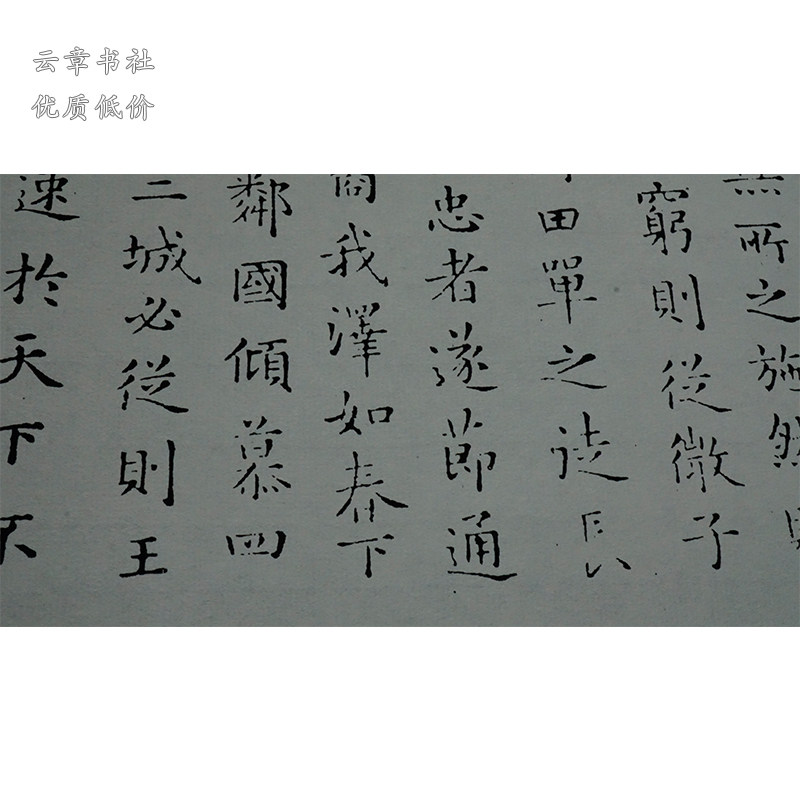 云章书社
优质低价
無所之施然
窮則從微子
田單之徒長
忠者遂節通
裔我澤如春下
鄰國傾慕四
二城必從則王
速於天下不